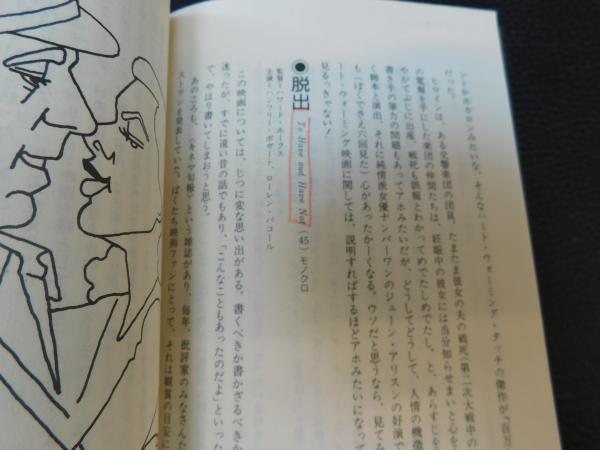 ントやカキロンみたいな、そんなハート・ウォーミング・タッチの傑作が『百万
だった。
ヒロインは、ある交響楽団の団員、たまたま彼女の夫の戦死(第二次大戦中の
の電報を手にした楽団の仲間たちは、妊娠中の彼女には当分知らせまいと心を
やがてぶじに出産、戦死も誤報とわかってめでたしめでたし、と、あらすじを
書き手の筆力の問題もあってアホみたいだが、どうしてどうして、人情の機微
く脚本と演出、それに純情派女優ナンバーワンのジューン・アリスンの好演で
も(ぼくでさえ六回見た)心があったかーくなる。ウソだと思うなら、見てみ
ート・ウォーミング映画に関しては、説明すればするほどアホみたいになって
見るっきゃない!
◉脱出 To Have and Have Not (45) モノクロ
監督=ハワード・ホークス
主演=ハンフリー・ボガート、ローレン・バコール
この映画については、じつに変な思い出がある。書くべきか書かざるべきか
迷ったが、すでに遠い昔の話でもあり、「こんなこともあったのだよ」といった
で、やはり書いてしまおうと思う。
あのころも、〈キネマ旬報〉という雑誌があり、毎年、批評家のみなさんた
ストテンを発表していた。ぼくたち映画ファンにとって、それは観賞の目安に